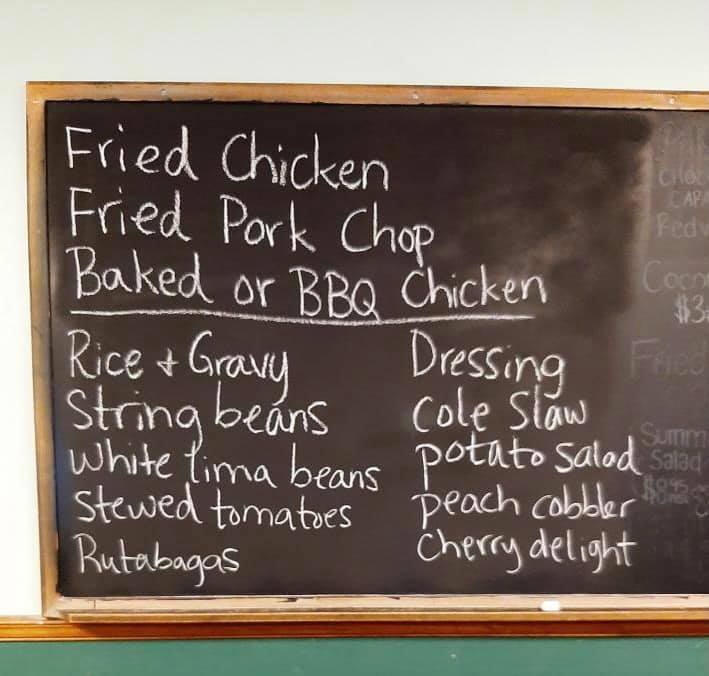 Fried Chicken
Fried Pork Chop
Baked or BBQ Chicken
Rice + Gravy
String beans
White lima beans
Stewed tomatoes
Rutabagas
Dressing
Cole Slaw
potato Salad
peach cobbler
Cherry delight
Fried
Summ
Salad
$8.95